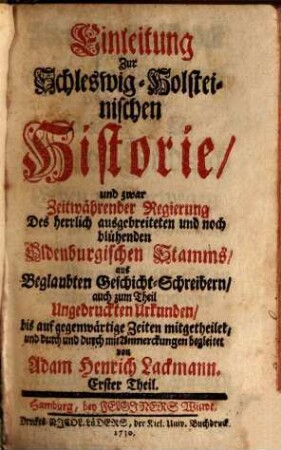 Einleitung
Zur
Schleswig-Holstei-
nischen
Historie/
und zwar
Zeitwährender Regierung
Des herrlich ausgebreiteten und noch
blühenden
Oldenburgischen Stamms/
aus
Beglaubten Geschicht-Schreibern/
auch zum Theil
Ungedruckten Urkunden/
bis auf gegenwärtige Zeiten mitgetheilet,
und durch und durch mit Anmerckungen begleitet
von
Adam Henrich Lackmann.
Erster Theil.
Hamburg, bey FELGINERS Wittwe.
Druckts NICOL. LÜDERS, der Kiel. Univ. Buchdruck.
1730.